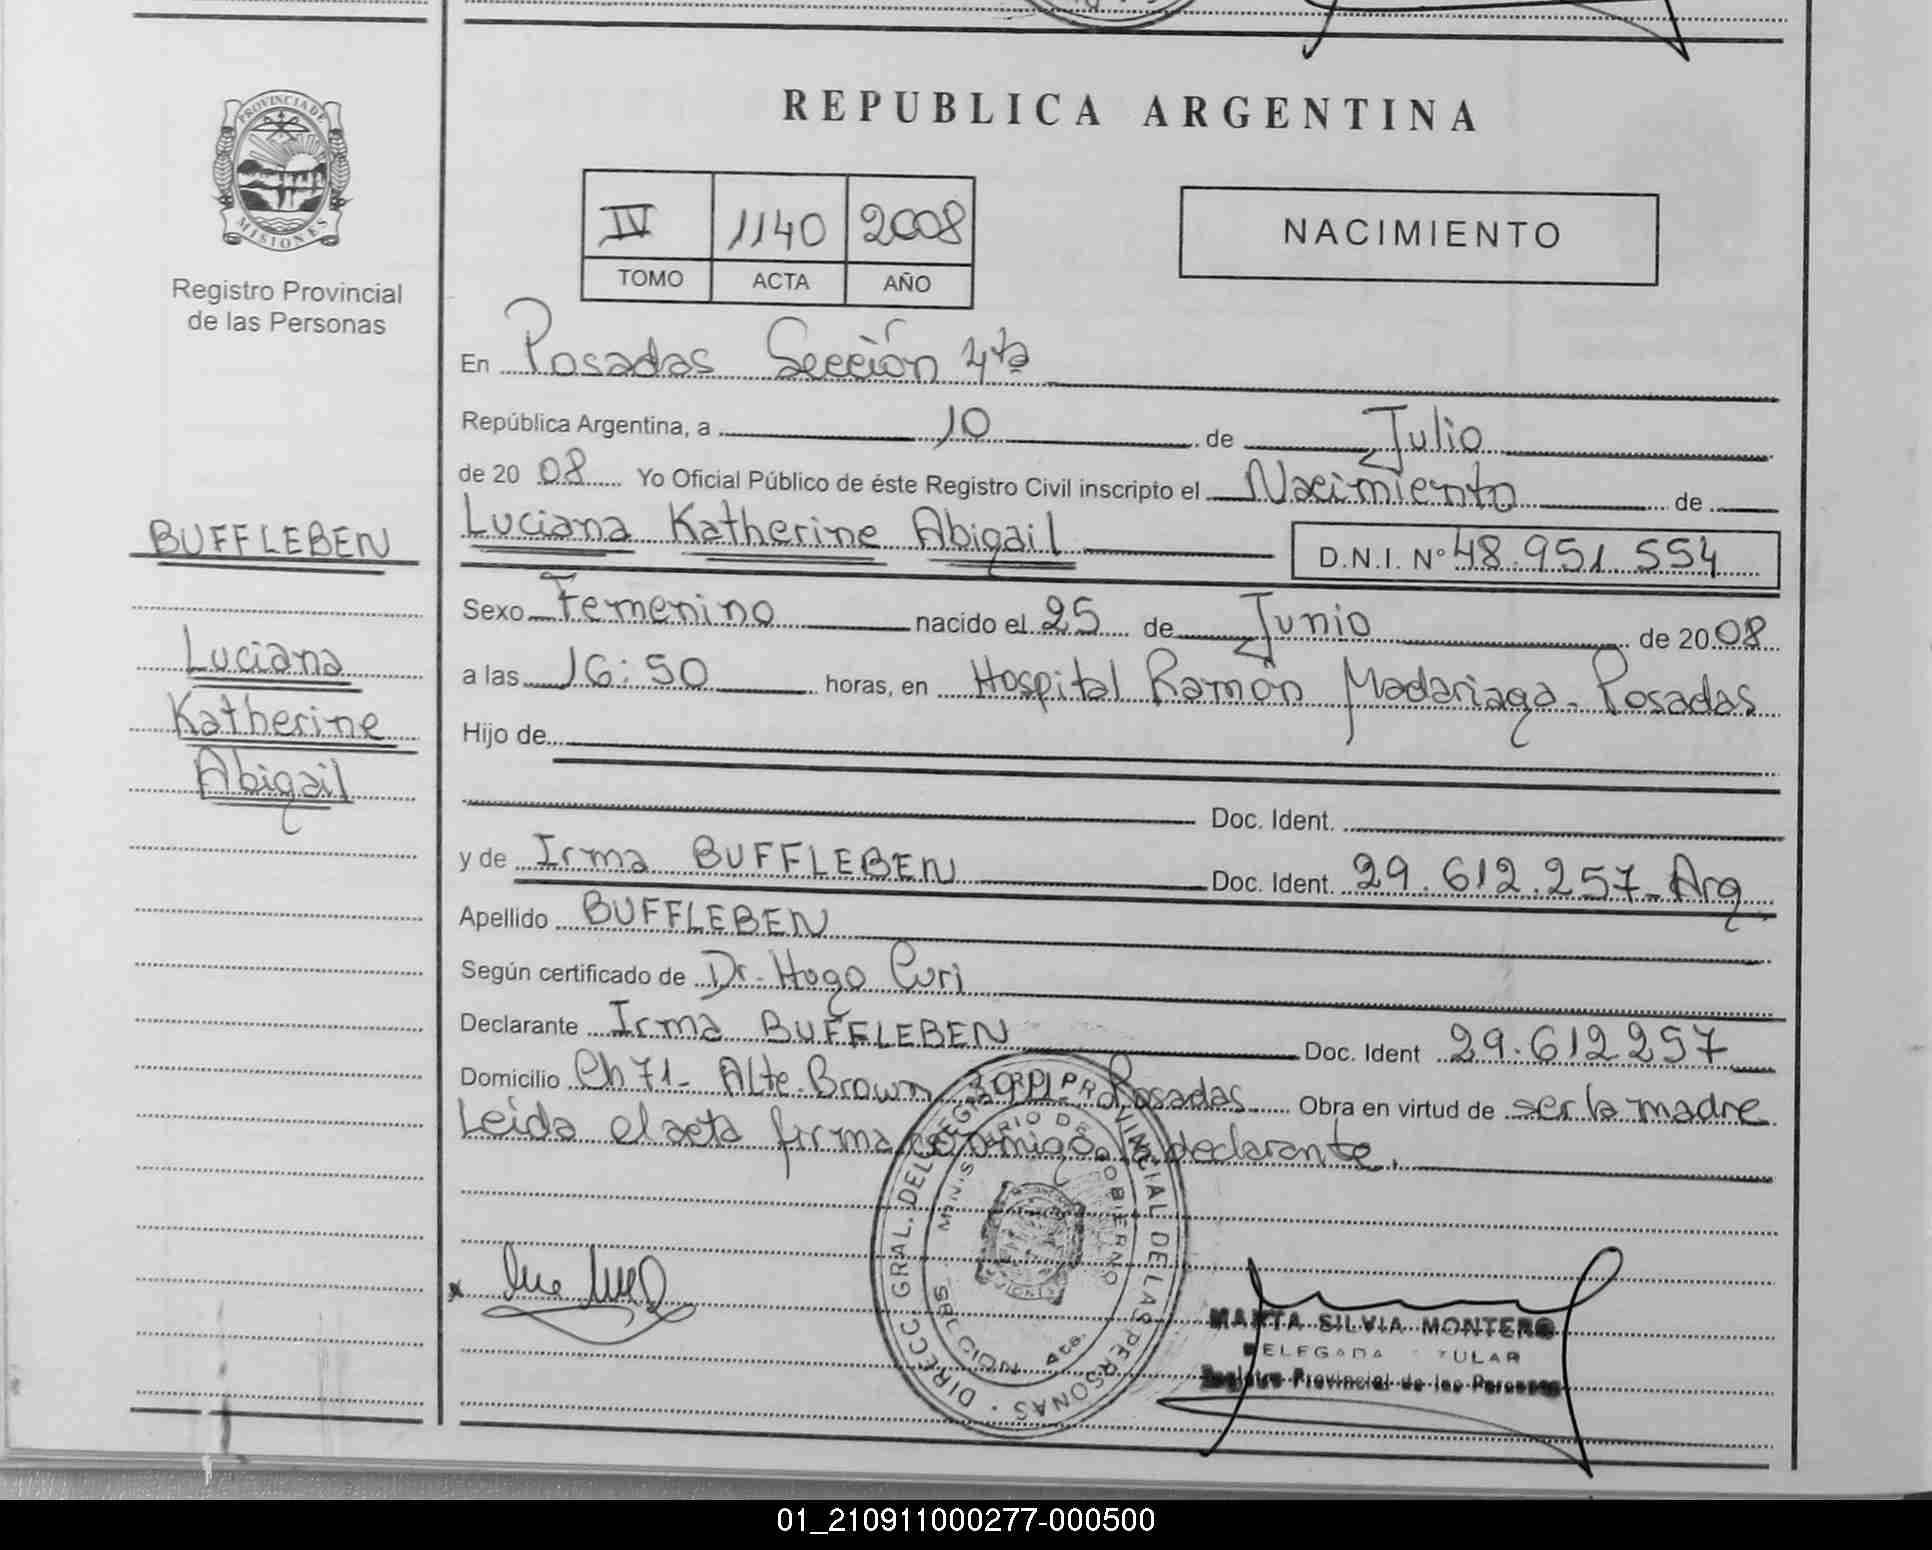 PROVINCIA DE
MISIONES
Registro Provincial
de las Personas
BUFFLEBEN
Luciana
Katherine
Abigail
REPUBLICA ARGENTINA
IV 1140 2008
TOMO ACTA AÑO
NACIMIENTO
En Posadas Sección 4ta
República Argentina, a 10 de Julio
de 2008 Yo Oficial Público de éste Registro Civil inscripto el Nacimiento de
Luciana Katherine Abigail D.N.I. Nº 48.951.554
Sexo Femenino nacido el 25 de Junio de 2008
a las 16:50 horas, en Hospital Ramón Madariaga - Posadas
Hijo de
Doc. Ident.
y de Irma BUFFLEBEN Doc. Ident. 29.612.257-Arg
Apellido BUFFLEBEN
Según certificado de Dr. Hugo Curi
Declarante Irma BUFFLEBEN Doc. Ident 29.612257
Domicilio Ch 71- Alte. Brown Posadas Obra en virtud de ser la madre
Leida el acta firma conmigo la declarante.
DIRECC. GRAL. DEL REG. PROVINCIAL DE LAS PERSONAS
MINISTERIO DE GOBIERNO
MISIONES
MARTA SILVIA MONTERO
DELEGADA TITULAR
Registro Provincial de las Personas
01_210911000277-000500